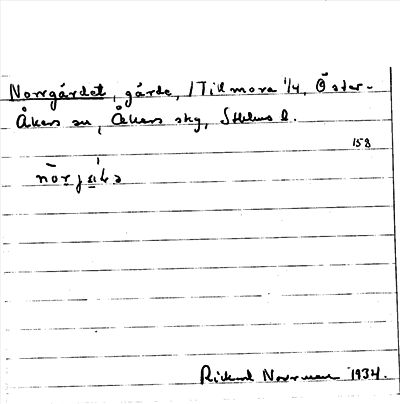 Norrgärdet, gärde, /Tillmora 1/4, Öster-
Åkers sn, Åkers sky, Sthlms l.
158
Rickard Norrman 1934.